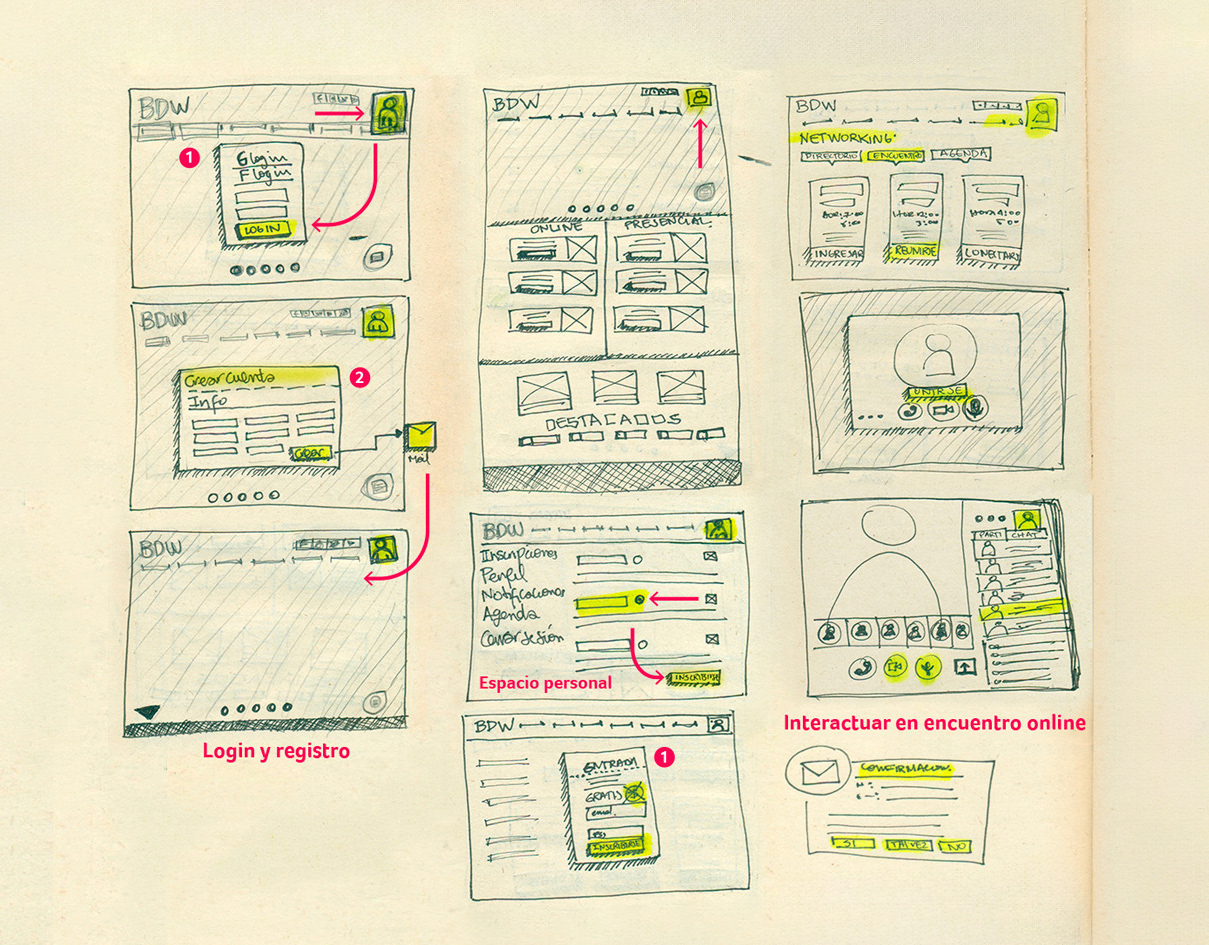 BDW
1
Glogin
Flogin
LOGIN
BDW
Crear Cuenta
2
Info
crear
Mail
BDW
Login y registro
BDW
ONLINE
PRESENCIAL
DESTACADOS
BDW
Inscripciones
Perfil
Notificaciones
Agenda
Cerrar sesión
INSCRIBIRSE
Espacio personal
BDW
1
ENTRADA
GRATIS
email.
INSCRIBIRSE
BDW
NETWORKING
DIRECTORIO
ENCUENTRO
AGENDA
INGRESAR
REUNIRSE
UNIRSE
PARTI
CHAT
Interactuar en encuentro online
CONFIRMACION.
SI
TALVEZ
NO